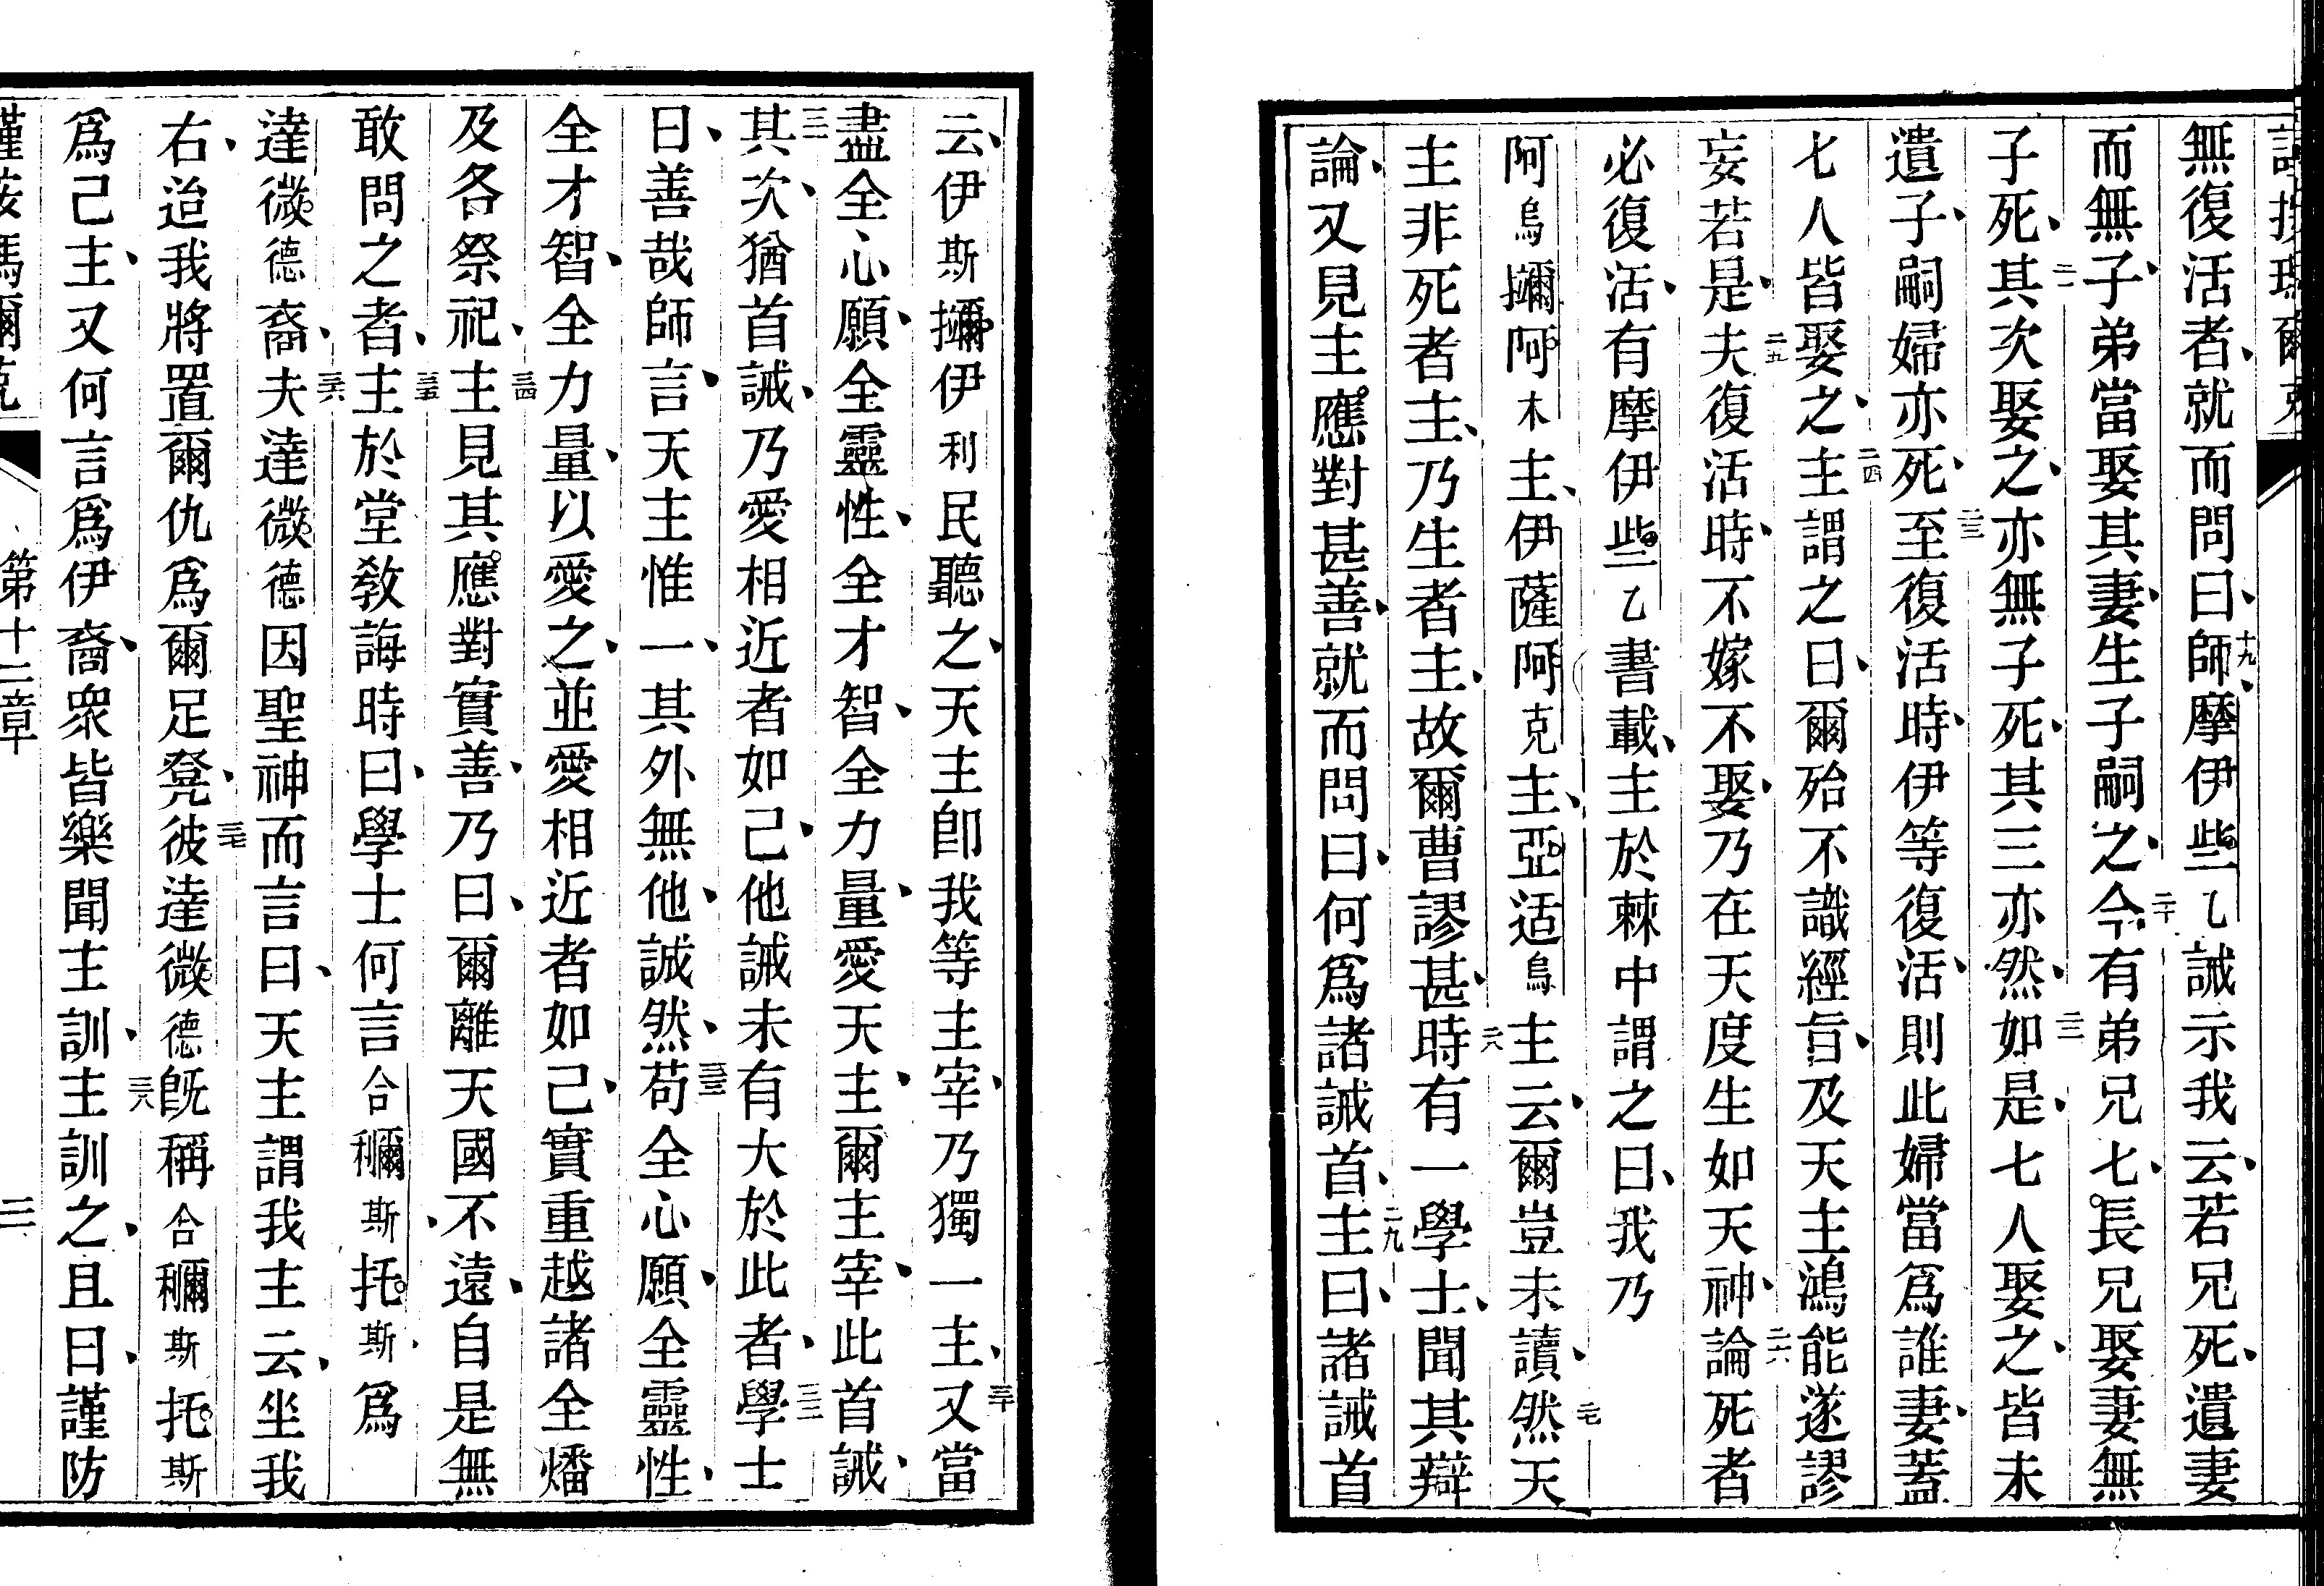 無復活者、就而問曰、十九師、摩伊些乙誡示我云、若兄死、遺妻
而無子、弟當娶其妻、生子嗣之、二十今有弟兄七、長兄娶妻無
子死、二一其次娶之、亦無子死、其三亦然、二二如是、七人娶之、皆未
遺子、嗣婦亦死、二三至復活時、伊等復活、則此婦當爲誰妻、蓋
七人皆娶之、二四主謂之曰、爾殆不識經旨、及天主鴻能遂謬
妄若是、二五夫復活時、不嫁不娶、乃在天度生如天神、二六論死者
必復活、有摩伊些乙書載、主於棘中謂之曰、我乃
阿烏擟阿木主、伊薩阿克主、亞适烏主云、爾豈未讀、二七然天
主非死者主、乃生者主、故爾曹謬甚、二八時有一學士、聞其辯
論、又見主應對甚善、就而問曰、何爲諸誡首、二九主曰、諸誡首
云、伊斯擟伊利民聽之、天主卽我等主宰、乃獨一主、三十又當
盡全心願、全靈性、全才智、全力量、愛天主、爾主宰、此首誡、
三一其次、猶首誡、乃愛相近者如己、他誡未有大於此者、三二學士
曰、善哉師言、天主惟一、其外無他、誠然、三三苟全心願、全靈性、
全才智、全力量、以愛之、並愛相近者如己、實重越諸全燔
及各祭祀、三四主見其應對實善、乃曰、爾離天國不遠、自是無
敢問之者、三五主於堂教誨時曰、學士何言合𥣡斯托斯、爲
達微德裔、三六夫達微德因聖神而言曰、天主謂我主云、坐我
右、迨我將置爾仇爲爾足凳、三七彼達微德旣稱合𥣡斯托斯
爲己主、又何言爲伊裔、衆皆樂聞主訓、三八主訓之、且曰、謹防
第十二章